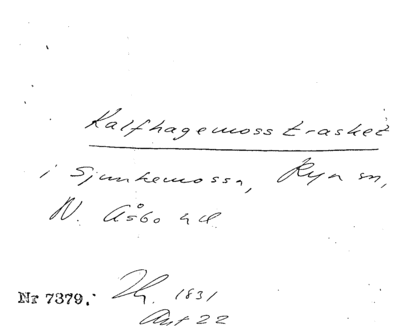 Kalfhagemosstrasket
i Sjunkemossa, Rya sn,
N. Åsbo hd.
Nr 7379. 1831
Ant 22